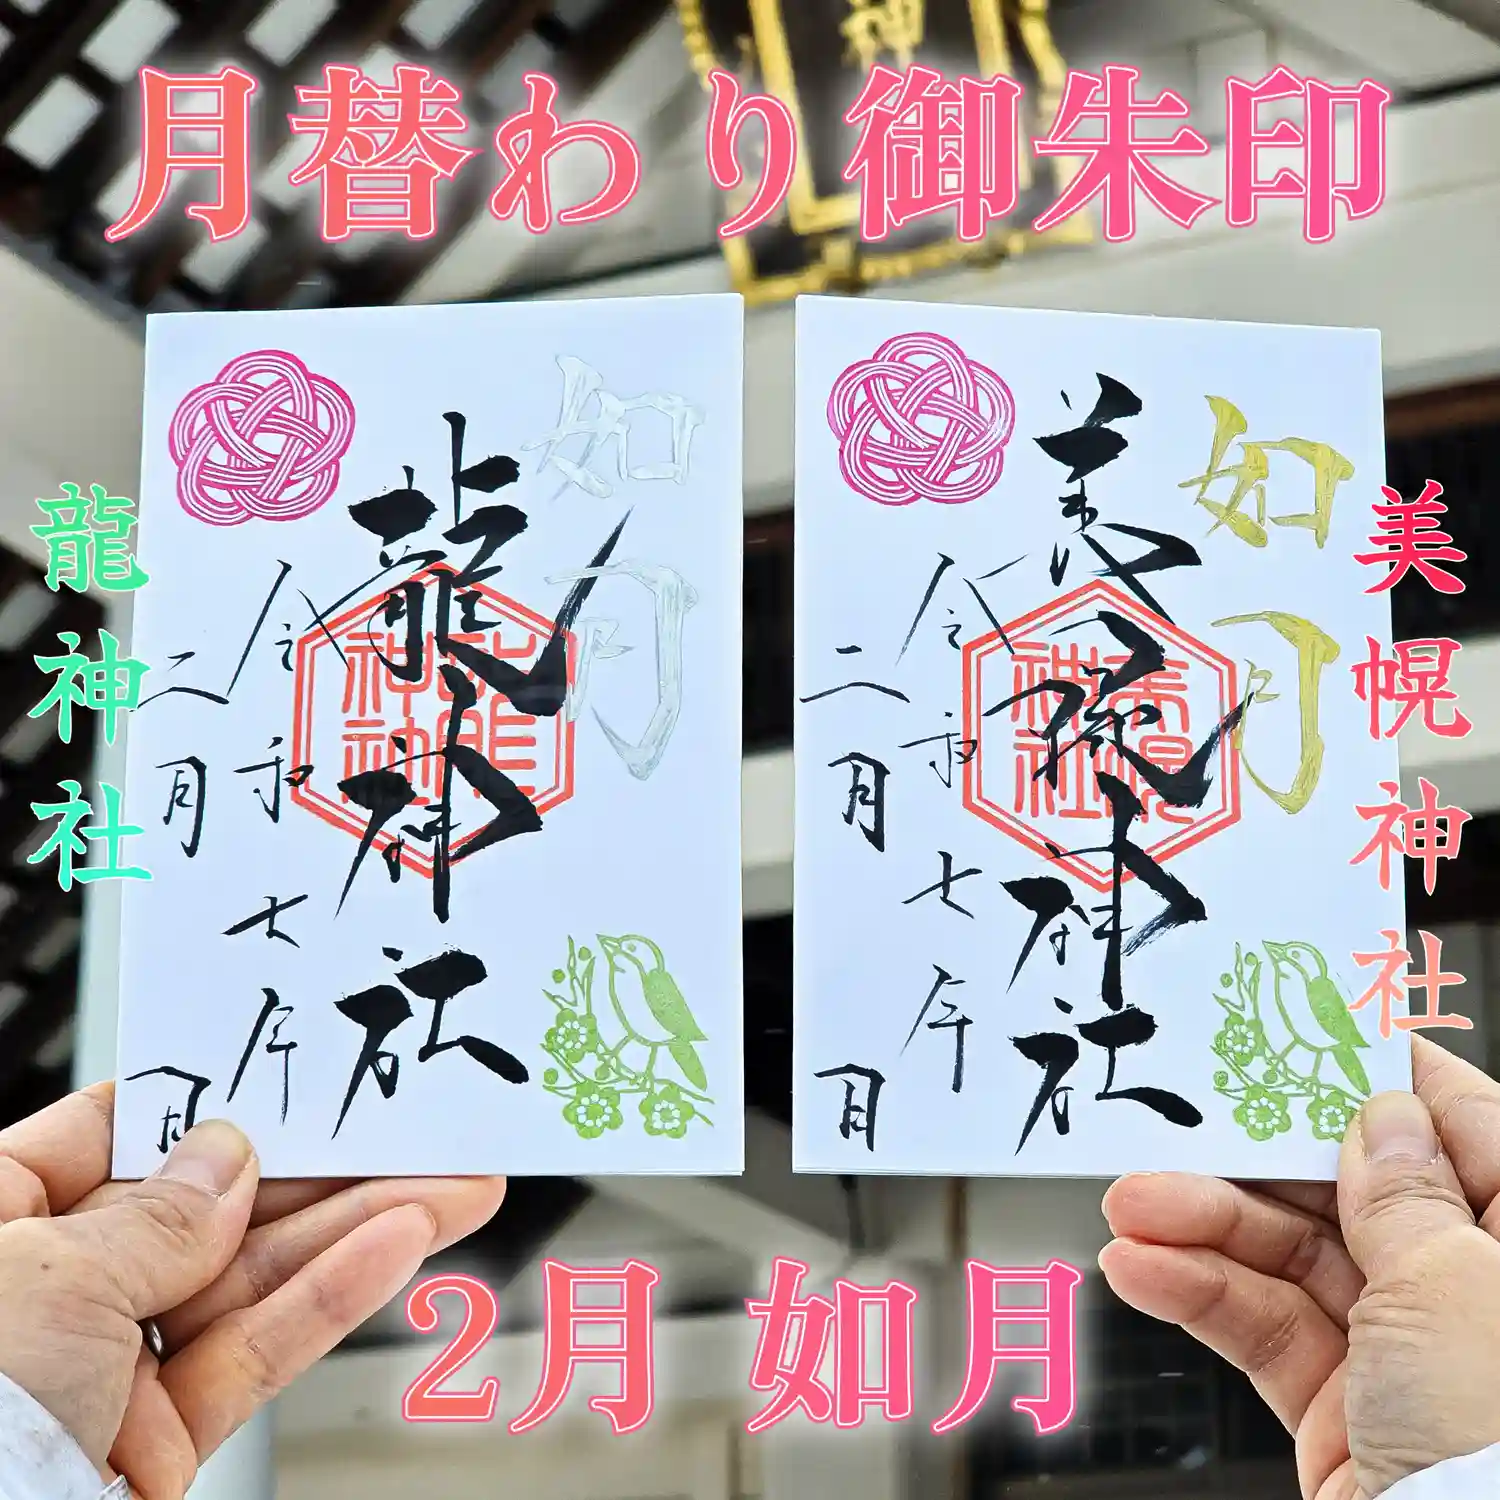 神
月替わり御朱印
龍神社
如月
龍神社
龍神社
令和七年
二月
日
美幌神社
如月
美幌神社
美幌神社
令和七年
二月
日
2月 如月